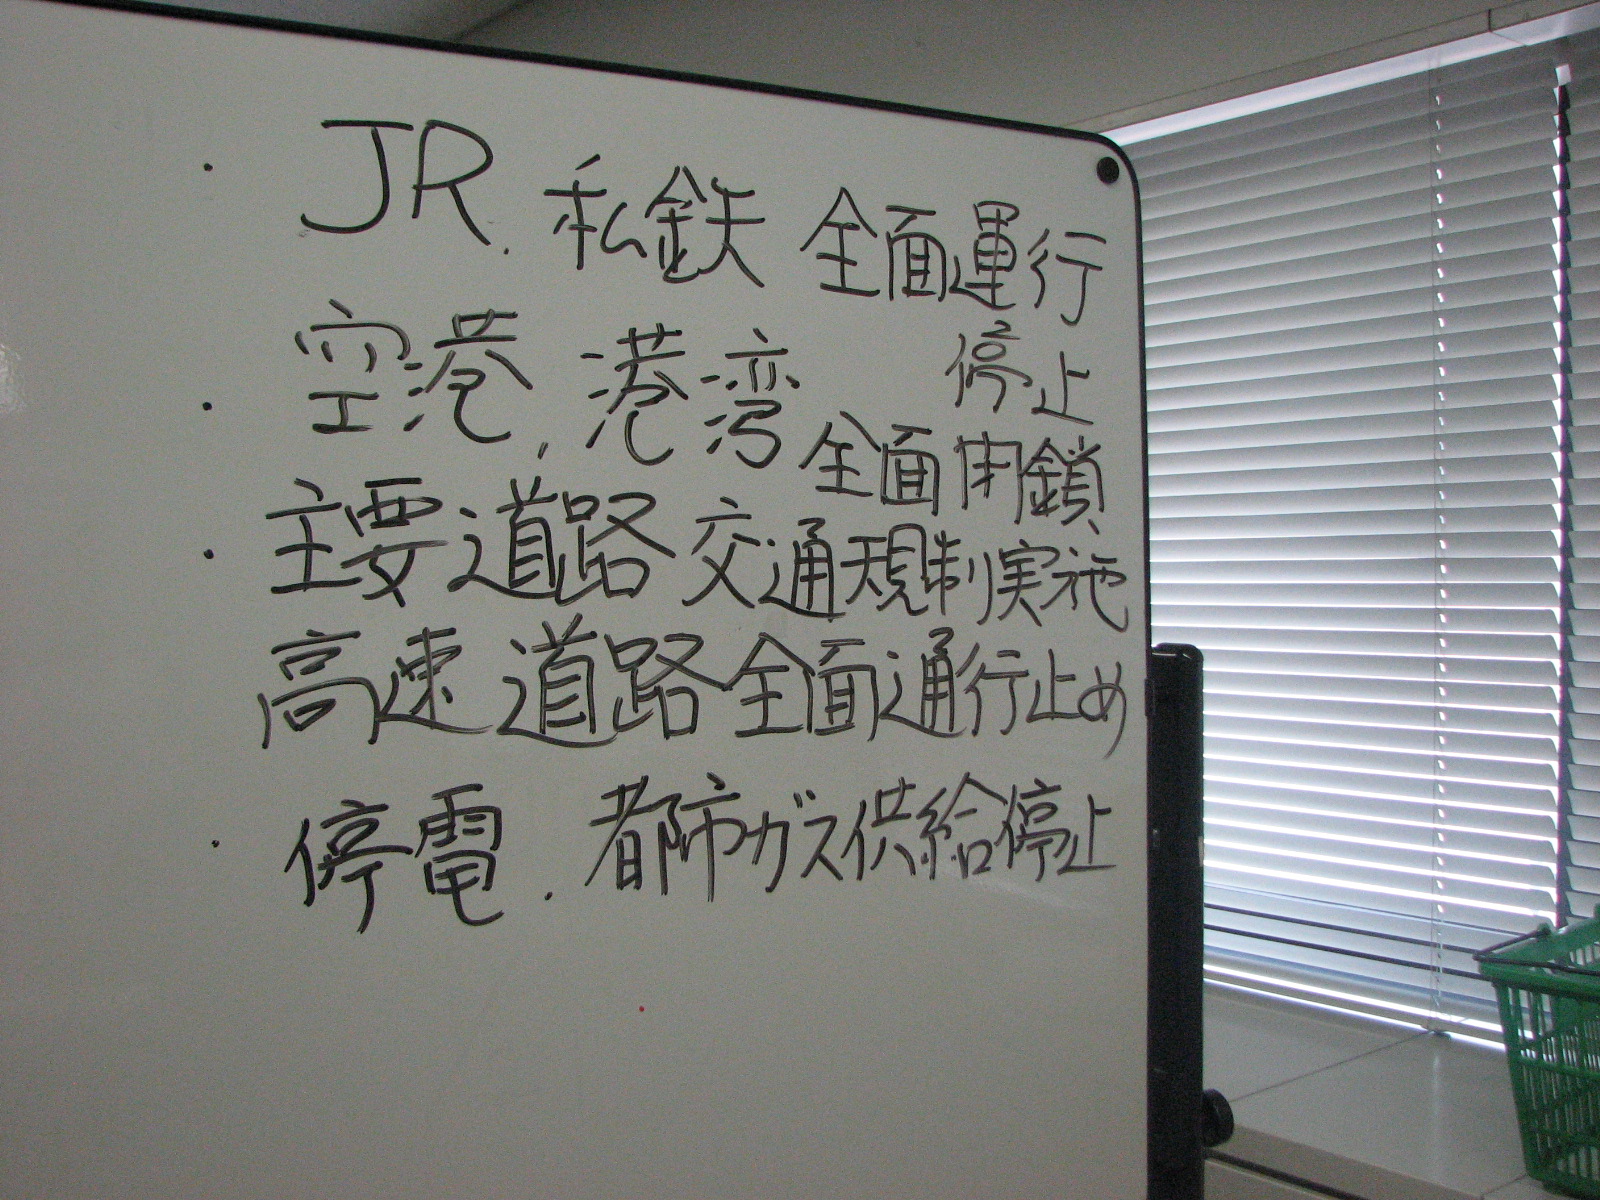 ・JR.私鉄 全面運行
停止
・空港,港湾 全面閉鎖
・主要道路 交通規制実施
高速道路全面通行止め
・停電.都市ガス供給停止